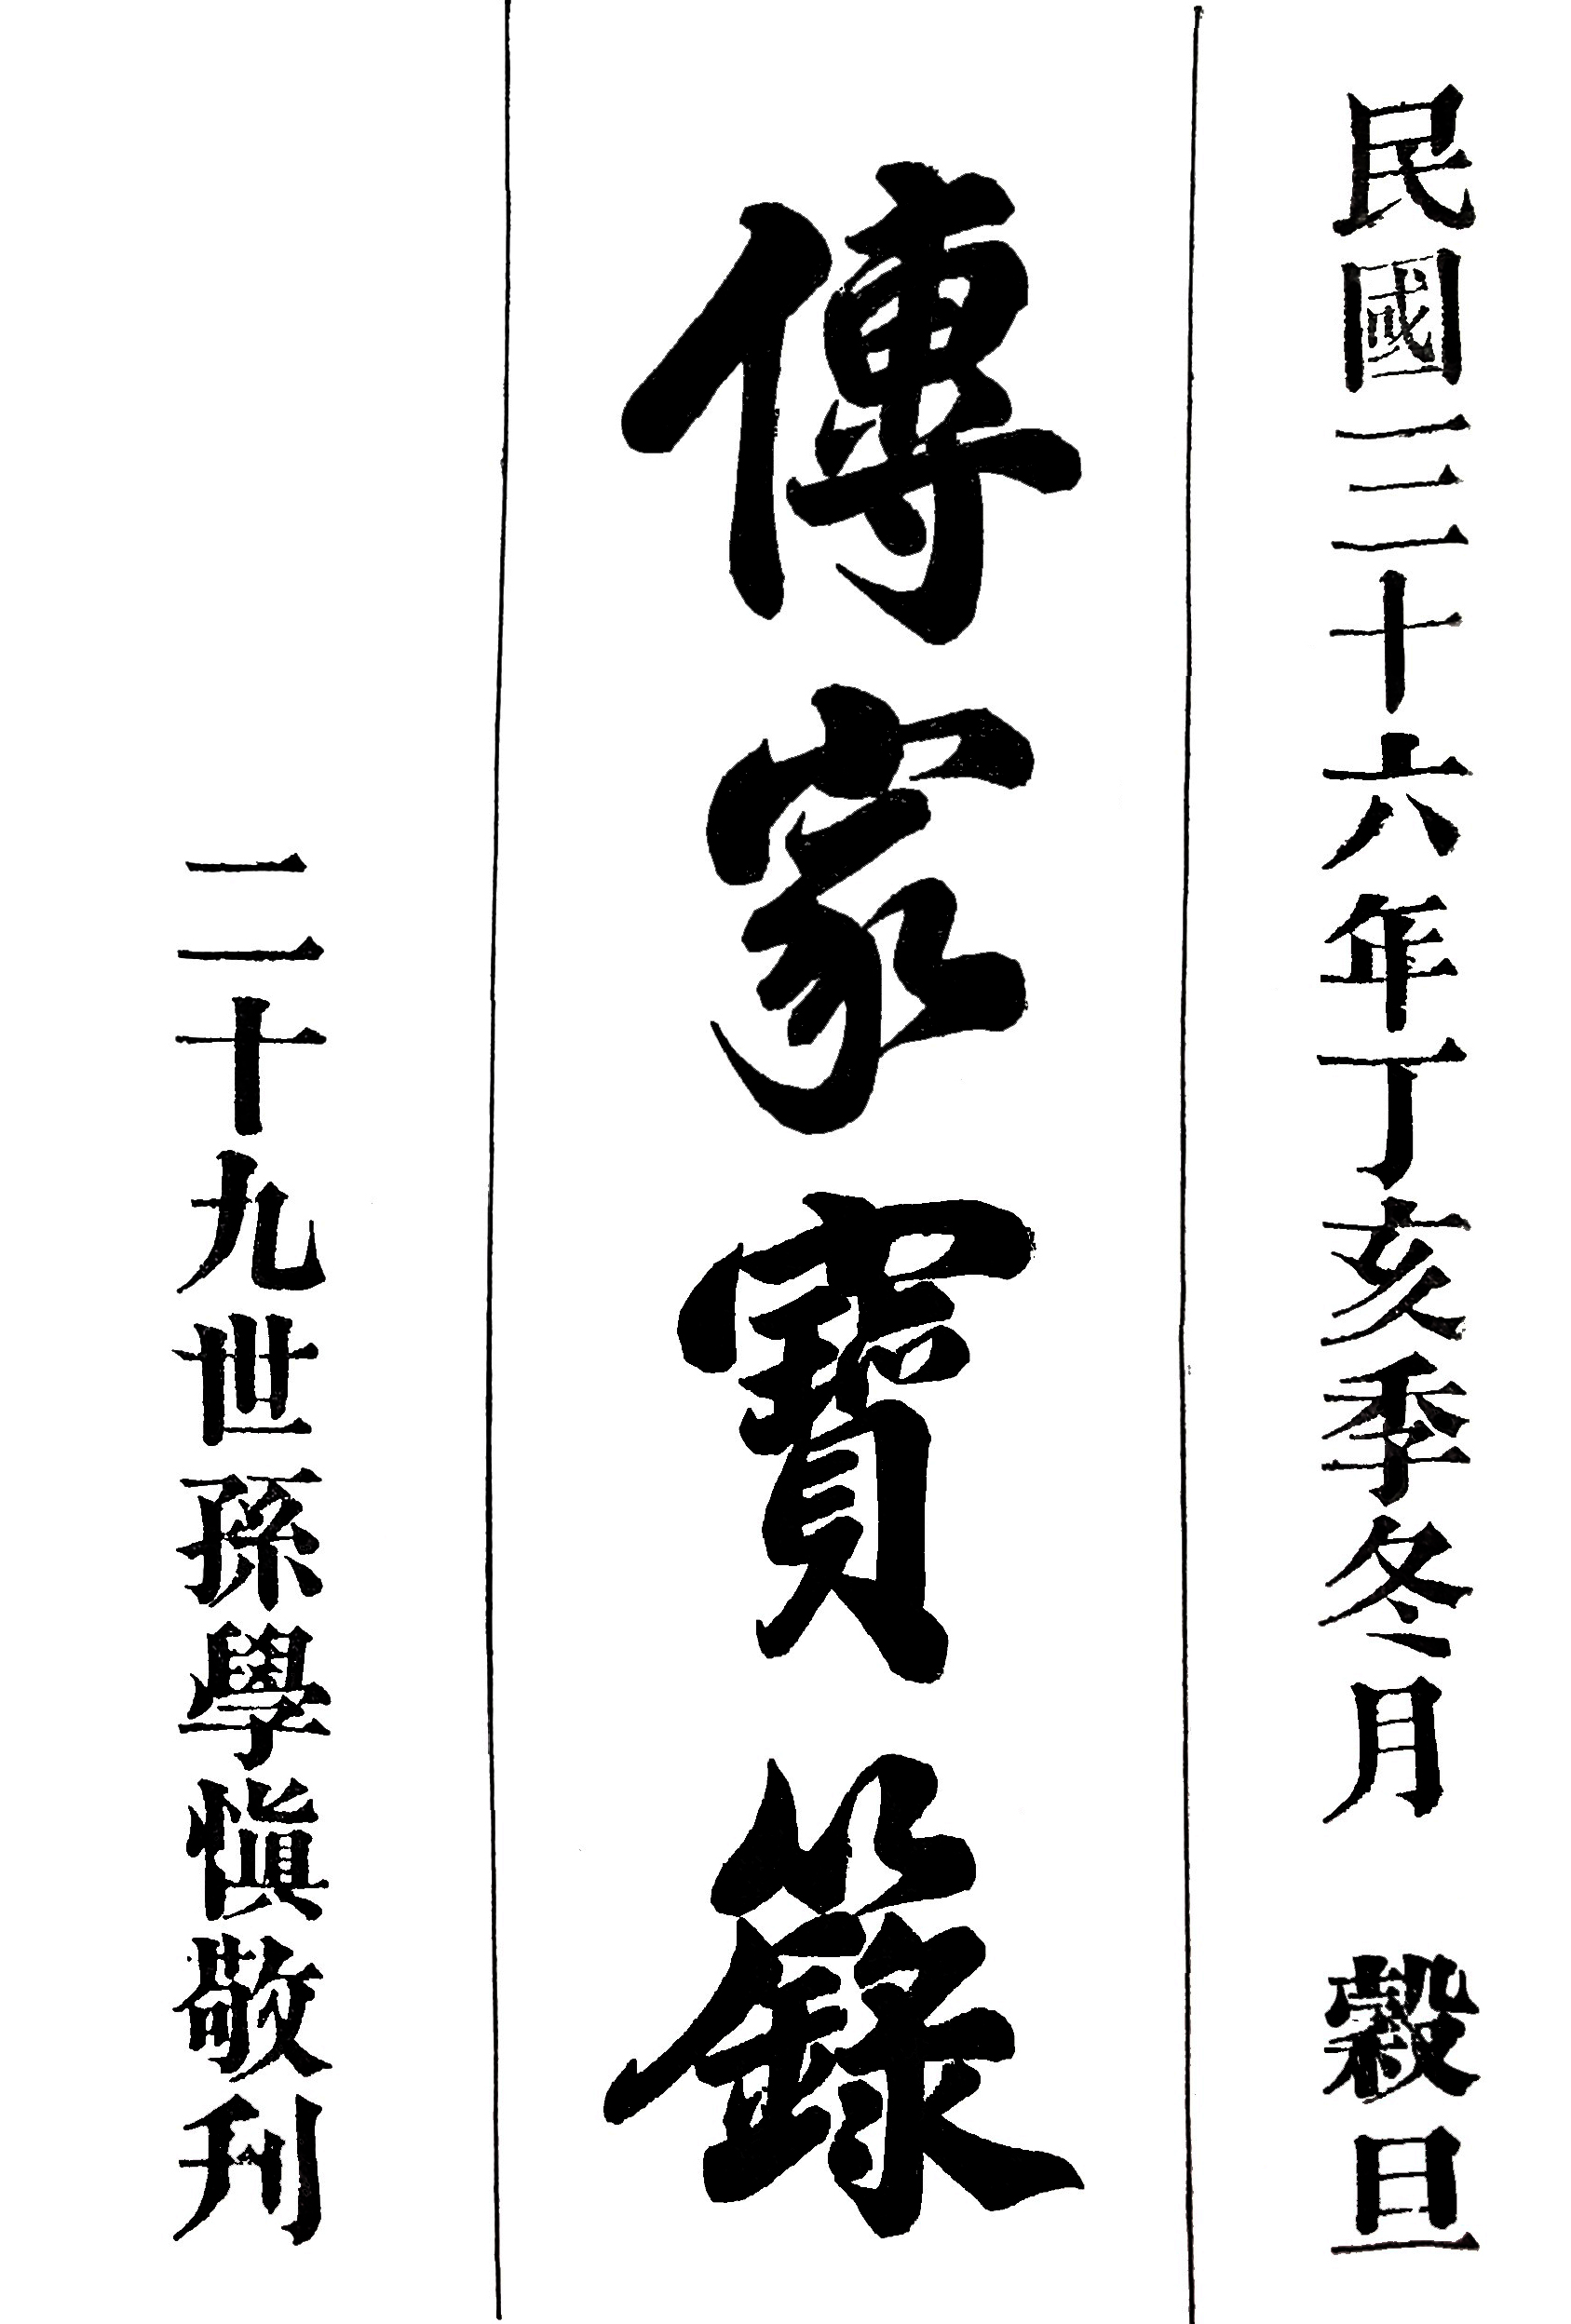 民國三十六年丁亥季冬月 穀旦
傳家寶籙
二十九世孫學愼敬刊